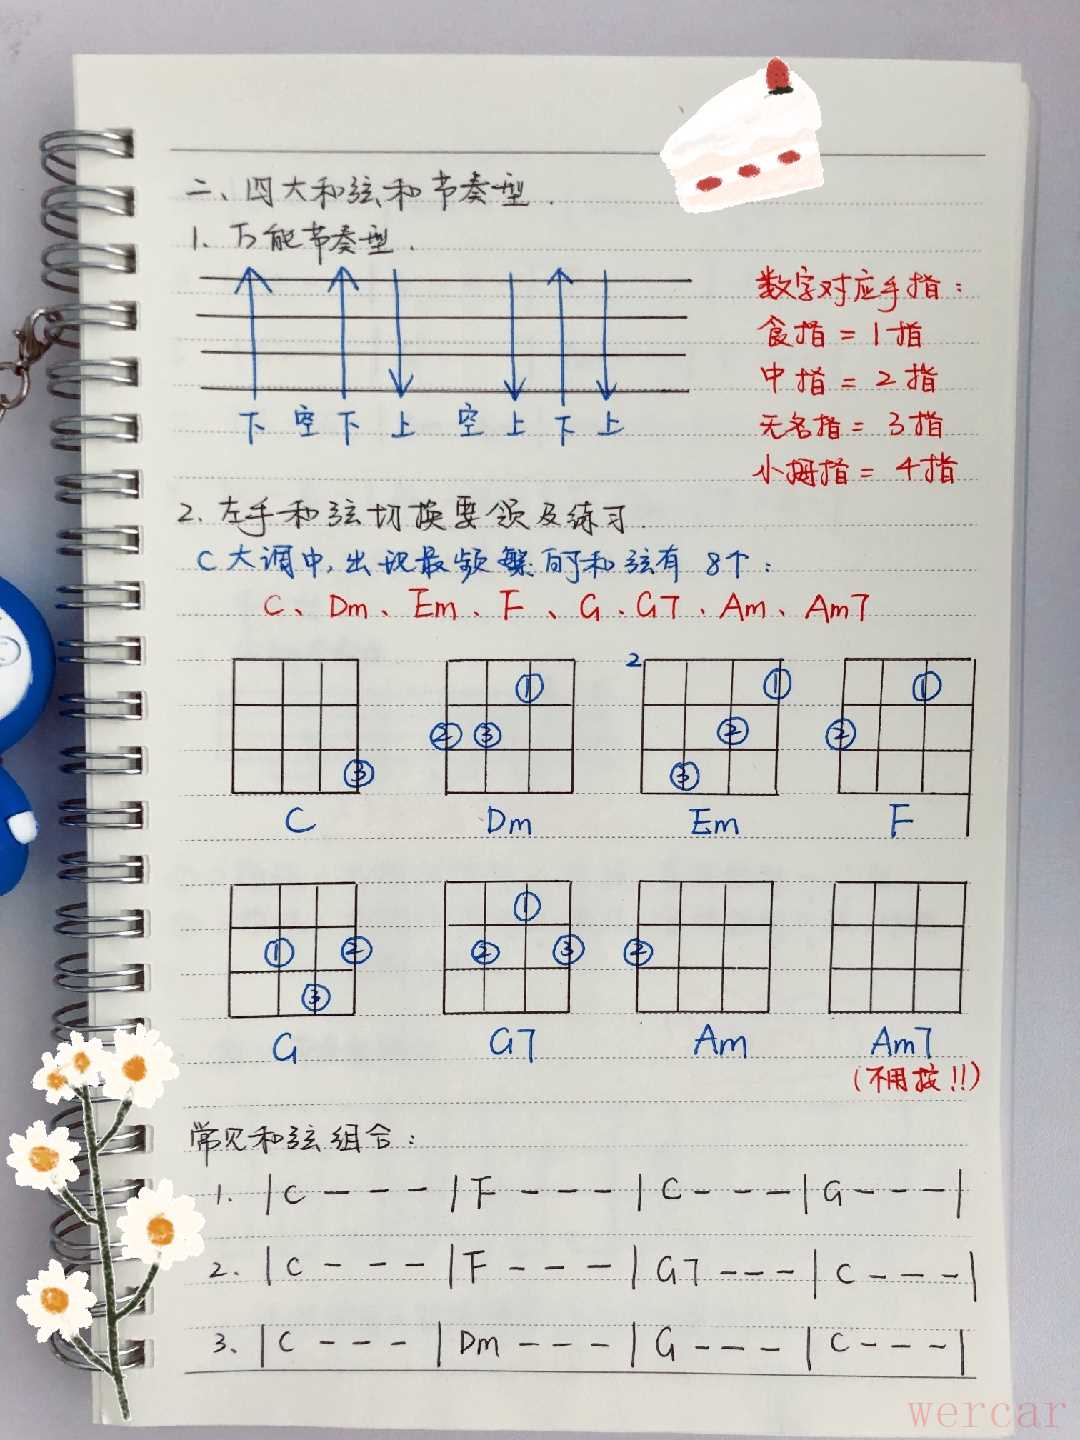 二、四大和弦和节奏型.
1、万能节奏型.
下 空 下 上 空 上 下 上
数字对应手指:
食指 = 1指
中指 = 2指
无名指 = 3指
小拇指 = 4指
2、左手和弦切换要领及练习.
C大调中,出现最频繁的和弦有 8个:
C、Dm、Em、F、G、G7、Am、Am7
2
① ① ①
② ③ ② ②
③ ③
C Dm Em F
①
① ② ② ③ ②
③
G G7 Am Am7
(不用按!!)
常见和弦组合:
1. | C - - - | F - - - | C - - - | G - - - |
2. | C - - - | F - - - | G7 - - - | C - - - |
3、| C - - - | Dm - - - | G - - - | C - - - |
wercar